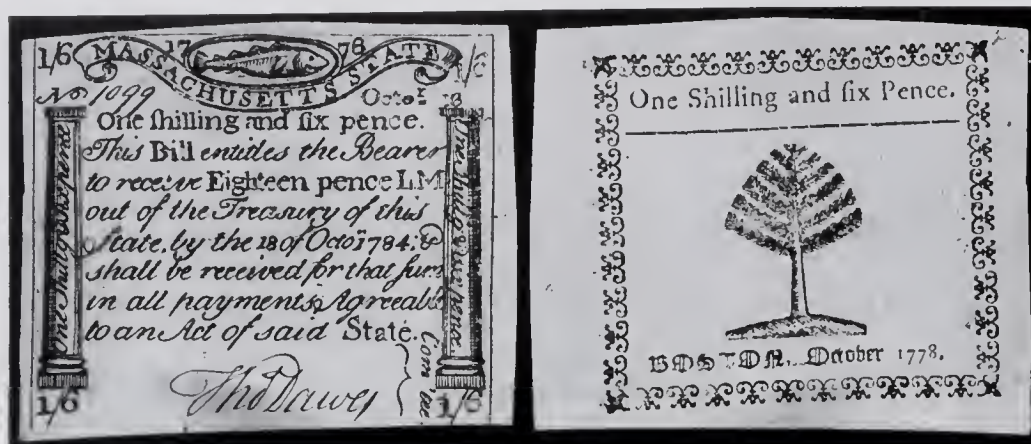 1/6 17 78 1/6
MASSACHUSETTS STATE
No 1099 Octor 18
One ſhilling and ſix pence.
This Bill entitles the Bearer
to receive Eighteen pence LM
out of the Treasury of this
State, by the 18 of Octor 1784, &
shall be received for that ſum
in all payments, Agreeable
to an Act of said State.
Thos Dawes
Com
1/6 1/6
One Shilling and ſix Pence.
BOSTON. October 1778.